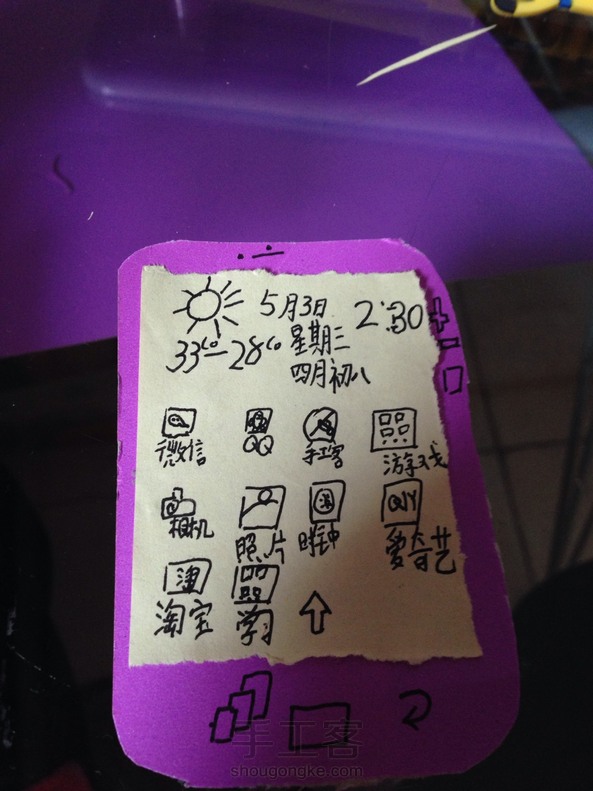 5月3日 2:30
33°-28° 星期三
四月初八
微信 QQ 手工客 游戏
相机 照片 时钟 QIY 爱奇艺
淘
淘宝 学习
手工客
shougongke.com